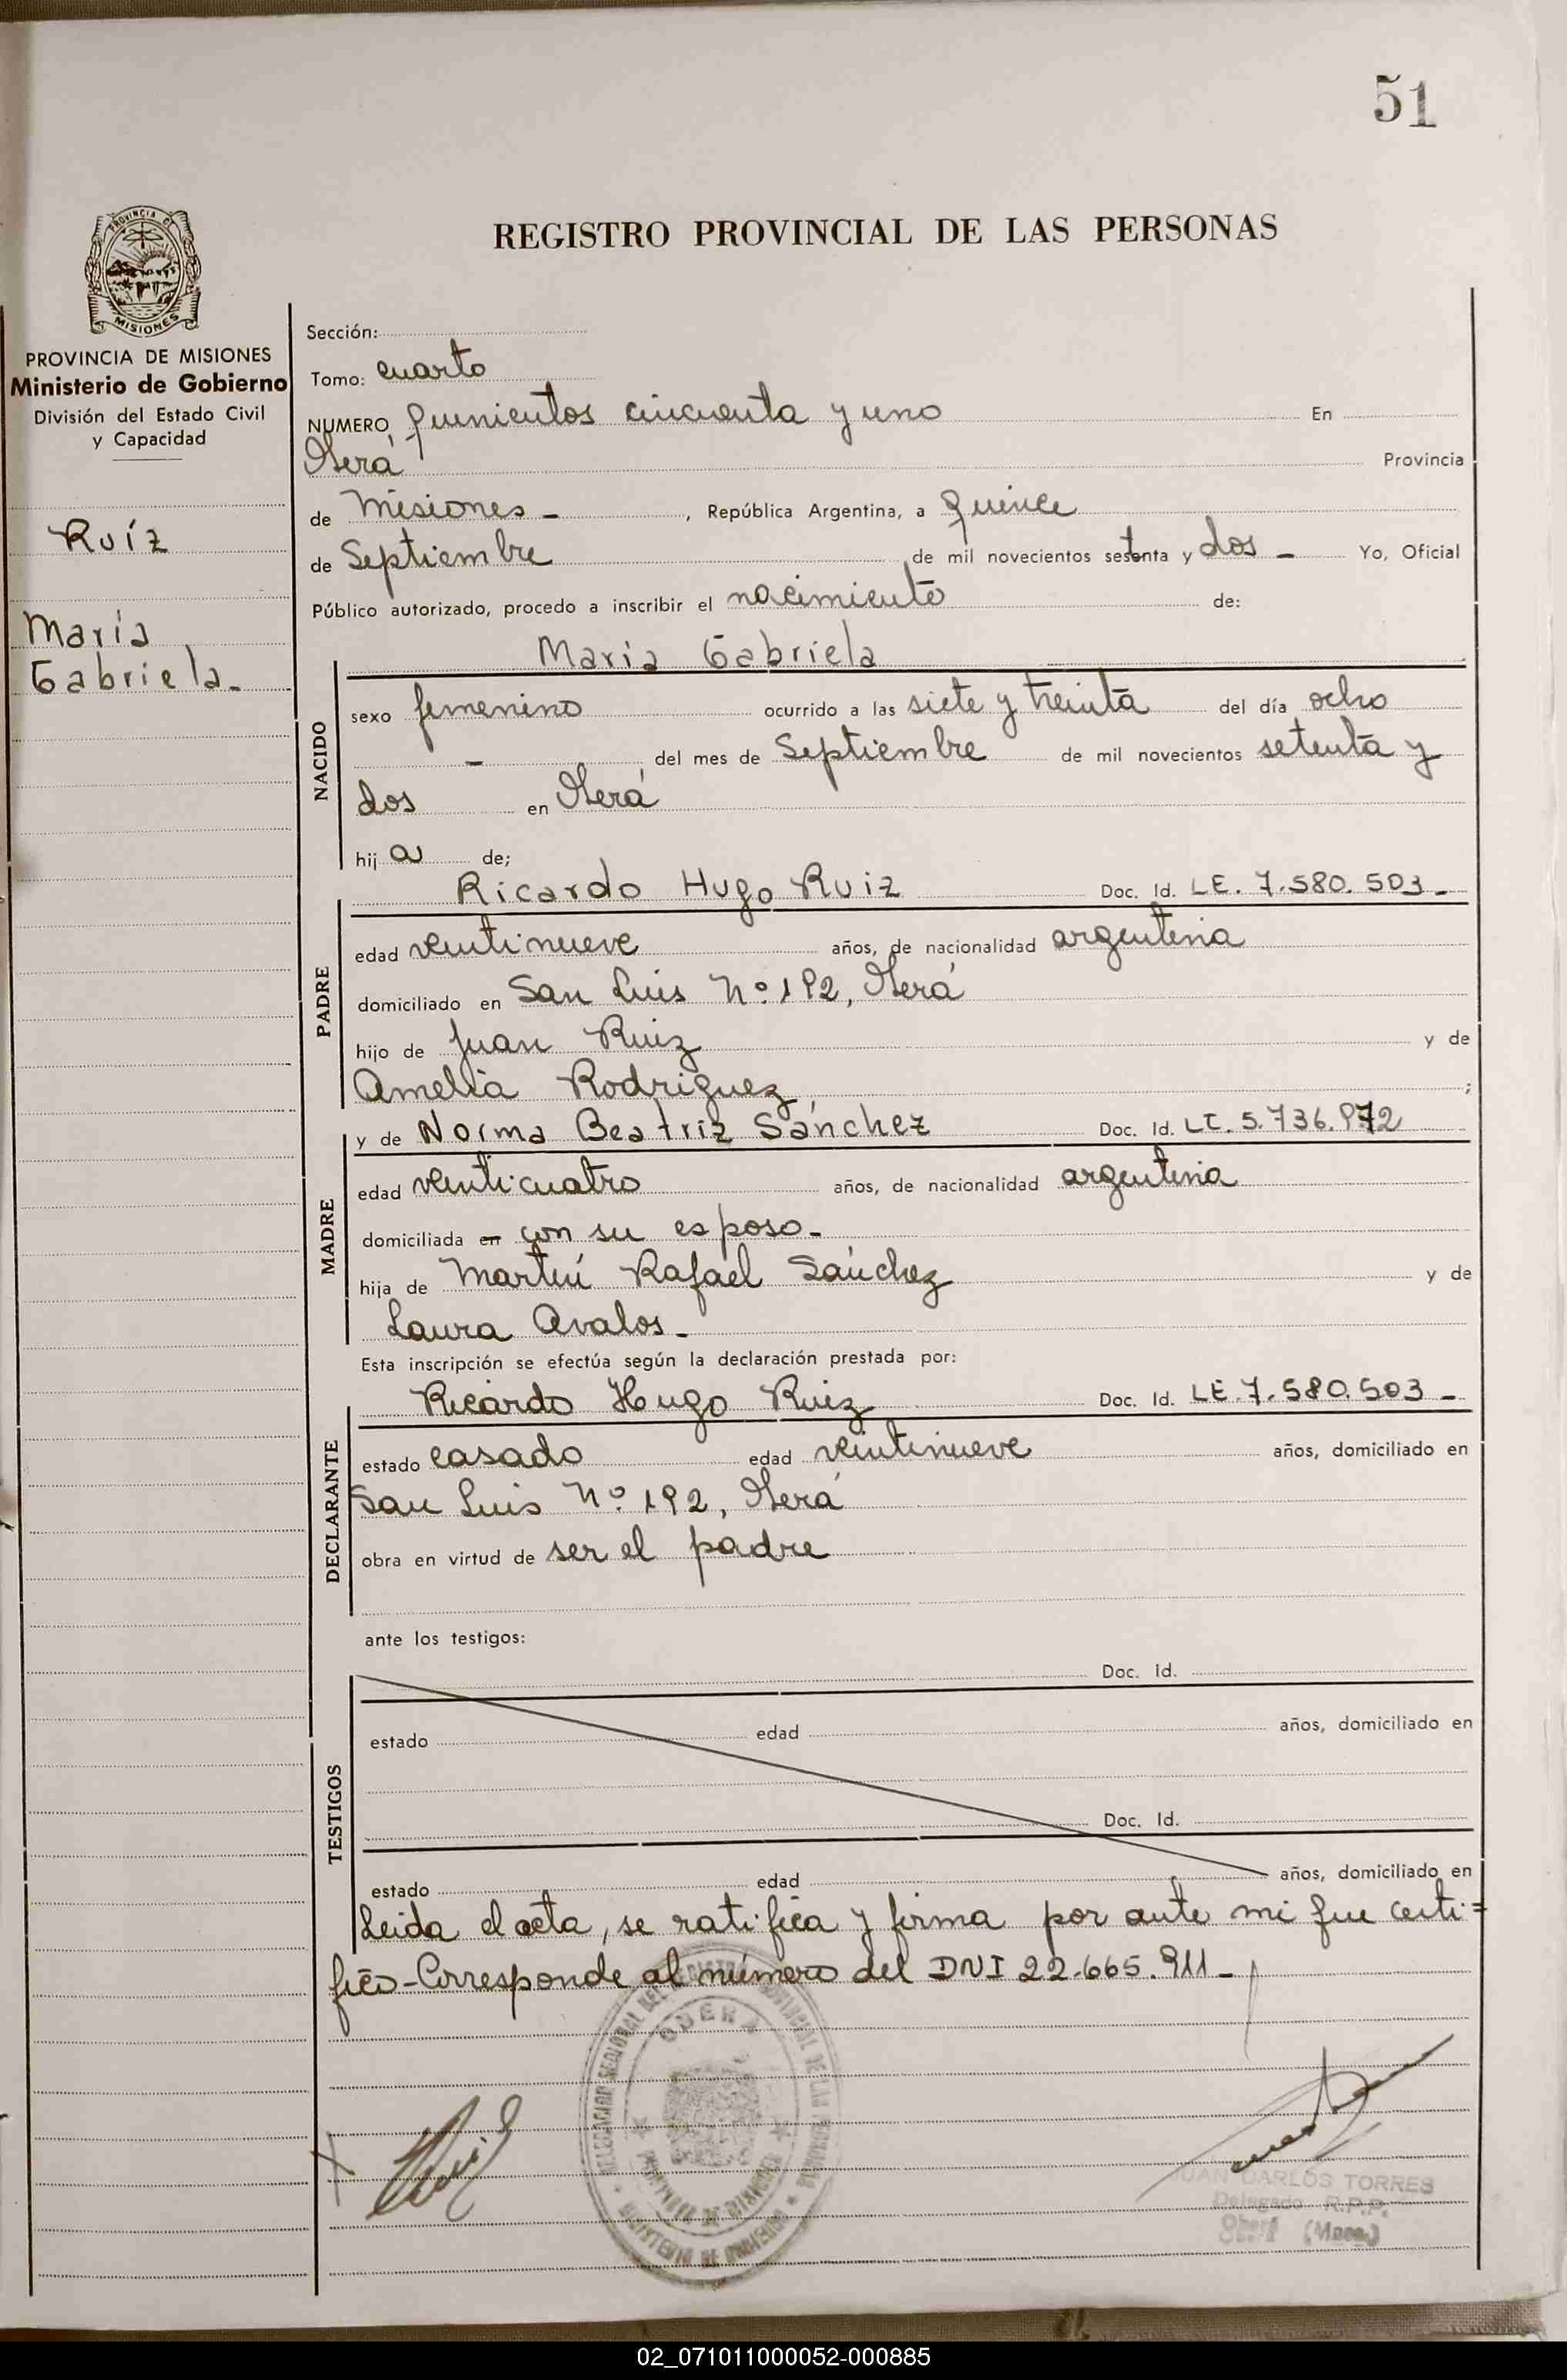 51
REGISTRO PROVINCIAL DE LAS PERSONAS
PROVINCIA DE MISIONES
Ministerio de Gobierno
División del Estado Civil
y Capacidad
Ruíz
María
Gabriela.
Sección:
Tomo: cuarto
NUMERO, Quinientos cincuenta y uno En
Oberá Provincia
de Misiones - , República Argentina, a Quince
de Septiembre de mil novecientos setenta y dos - Yo, Oficial
Público autorizado, procedo a inscribir el nacimiento de:
María Gabriela
NACIDO
sexo femenino ocurrido a las siete y treinta del día ocho
- del mes de Septiembre de mil novecientos setenta y
dos en Oberá
hij a de;
PADRE
Ricardo Hugo Ruiz Doc. Id. LE. 7.580.503-
edad veintinueve años, de nacionalidad argentina
domiciliado en San Luis Nº 192, Oberá
hijo de Juan Ruiz y de
Amelia Rodriguez ;
MADRE
y de Norma Beatriz Sánchez Doc. Id. LC. 5.736.972
edad veinticuatro años, de nacionalidad argentina
domiciliada en con su esposo-
hija de Martín Rafael Sánchez y de
Laura Avalos.-
Esta inscripción se efectúa según la declaración prestada por:
DECLARANTE
Ricardo Hugo Ruiz Doc. Id. LE.7.580.503-
estado casado edad veintinueve años, domiciliado en
San Luis Nº 192, Oberá
obra en virtud de ser el padre
ante los testigos:
TESTIGOS
Doc. Id.
estado edad años, domiciliado en
Doc. Id.
estado edad años, domiciliado en
Leida el acta, se ratifica y firma por ante mi que certi=
fico-Corresponde al número del DNI 22.665.911-
DELEGACION REGIONAL DEL REGISTRO PROVINCIAL DE LAS PERSONAS
OBERA
PROVINCIA DE MISIONES
MINISTERIO DE GOBIERNO
JUAN CARLOS TORRES
Delegado R.P.P.
Oberá (Mnes.)
02_071011000052-000885